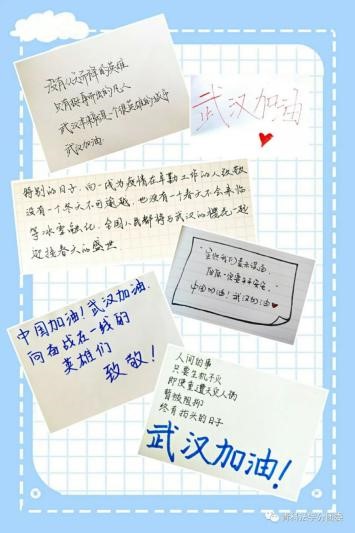 没有从天而降的英雄
只有挺身而出的凡人
武汉本来就是一个很英雄的城市
武汉加油
武汉加油
特别的日子,向一线为疫情在辛勤工作的人致敬
没有一个冬天不可逾越,也没有一个春天不会来临
等冰雪融化,全国人民都将与武汉的樱花一起
迎接春天的盛世
中国加油!武汉加油
中国加油!武汉加油.
向奋战在一线的
英雄们
致敬!
人间的事
只要生机不灭
即便重遭天灾人祸
暂被阻抑
终有抬头的日子
武汉加油!